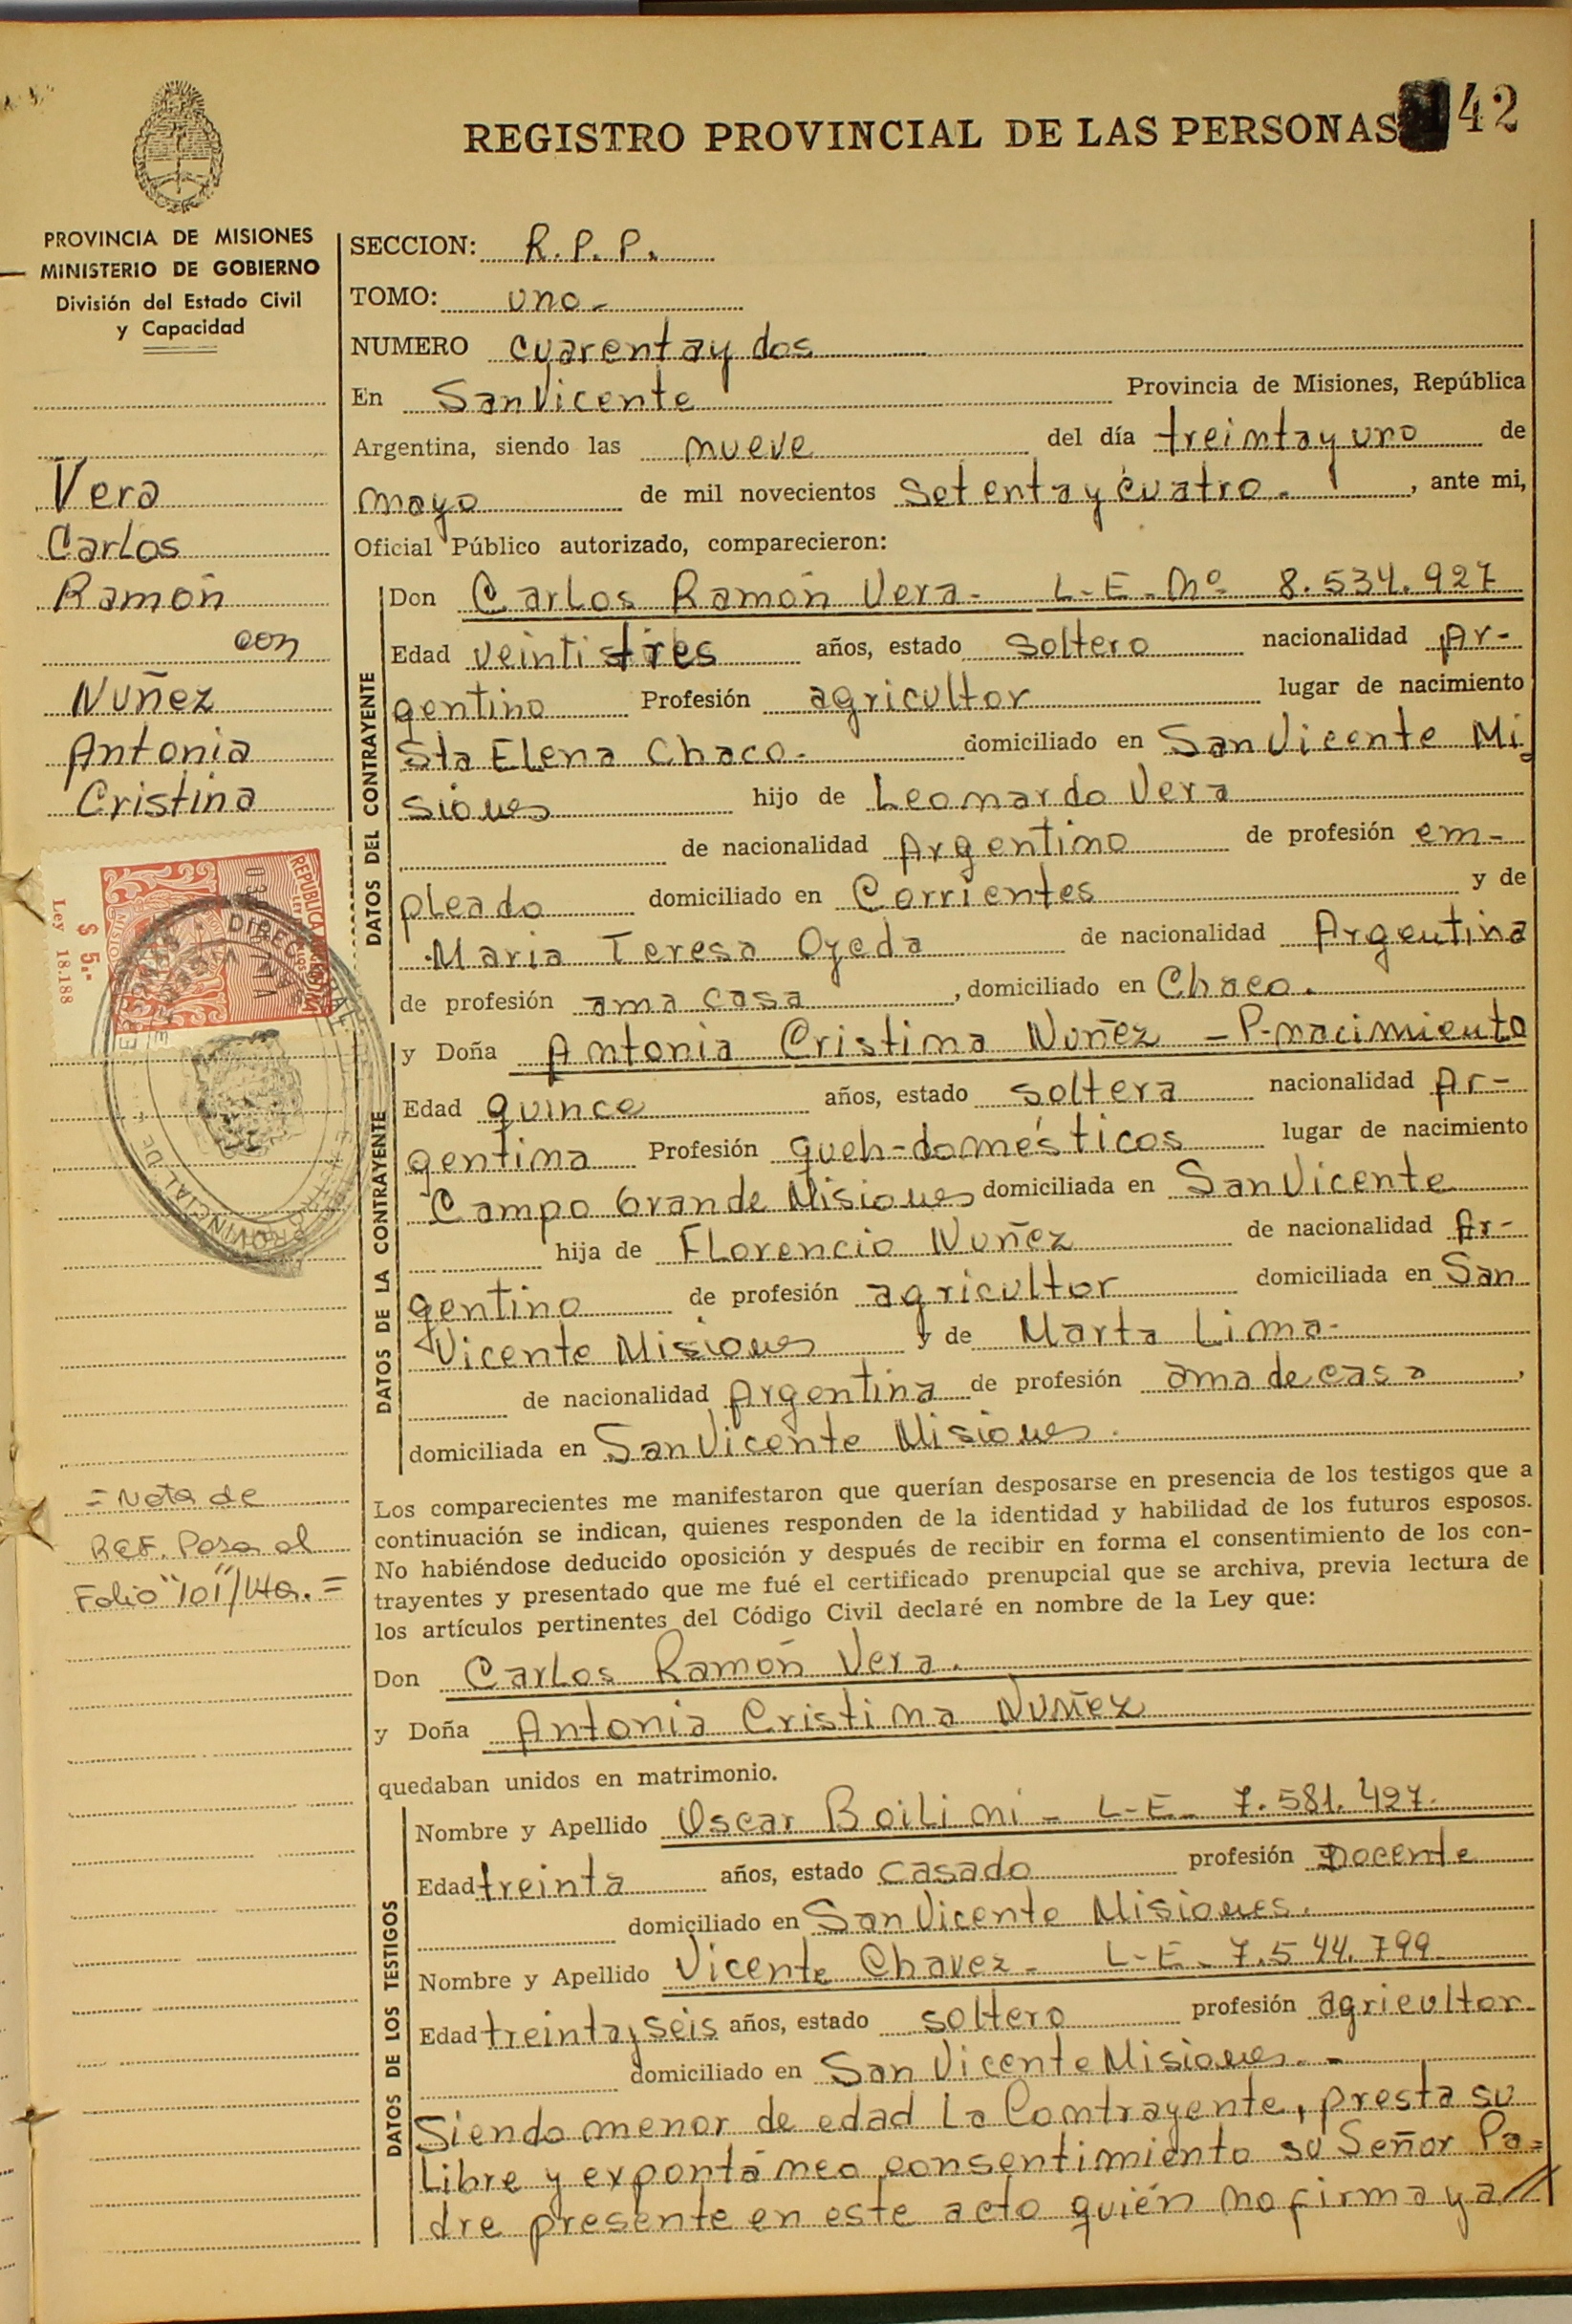 REGISTRO PROVINCIAL DE LAS PERSONAS 42
PROVINCIA DE MISIONES
MINISTERIO DE GOBIERNO
División del Estado Civil
y Capacidad
Vera
Carlos
Ramón
con
Nuñez
Antonia
Cristina
REPUBLICA
$ 5.-
Ley 18.188
= Nota de
REF. Pasa al
Folio "101"/Vta. =
SECCION: R.P.P.
TOMO: uno-
NUMERO cuarenta y dos
En San Vicente Provincia de Misiones, República
Argentina, siendo las nueve del día treinta y uno de
mayo de mil novecientos setenta y cuatro. , ante mi,
Oficial Público autorizado, comparecieron:
DATOS DEL CONTRAYENTE
Don Carlos Ramón Vera- L-E-Nº 8.534.927
Edad veintistres años, estado soltero nacionalidad Ar-
gentino Profesión agricultor lugar de nacimiento
Sta Elena Chaco- domiciliado en San Vicente Mi
siones hijo de Leonardo Vera
de nacionalidad Argentino de profesión em-
pleado domiciliado en Corrientes y de
Maria Teresa Ojeda de nacionalidad Argentina
de profesión ama casa , domiciliado en Chaco.
DATOS DE LA CONTRAYENTE
y Doña Antonia Cristina Nuñez - P-nacimiento
Edad quince años, estado soltera nacionalidad Ar-
gentina Profesión queh-domésticos lugar de nacimiento
Campo Grande Misiones domiciliada en San Vicente
hija de Florencio Nuñez de nacionalidad Ar-
gentino de profesión agricultor domiciliada en San
Vicente Misiones y de Marta Lima-
de nacionalidad Argentina de profesión ama de casa ,
domiciliada en San Vicente Misiones.
Los comparecientes me manifestaron que querían desposarse en presencia de los testigos que a
continuación se indican, quienes responden de la identidad y habilidad de los futuros esposos.
No habiéndose deducido oposición y después de recibir en forma el consentimiento de los con-
trayentes y presentado que me fué el certificado prenupcial que se archiva, previa lectura de
los artículos pertinentes del Código Civil declaré en nombre de la Ley que:
Don Carlos Ramón Vera.
y Doña Antonia Cristina Nuñez
quedaban unidos en matrimonio.
DATOS DE LOS TESTIGOS
Nombre y Apellido Oscar Boilini - L-E- 7.581.427-
Edad treinta años, estado casado profesión Docente
domiciliado en San Vicente Misiones.
Nombre y Apellido Vicente Chavez- L-E- 7.544.799-
Edad treinta y seis años, estado soltero profesión agricultor-
domiciliado en San Vicente Misiones.-
Siendo menor de edad La Contrayente, presta su
Libre y expontáneo consentimiento su Señor Pa=
dre presente en este acto quién no firma ya //